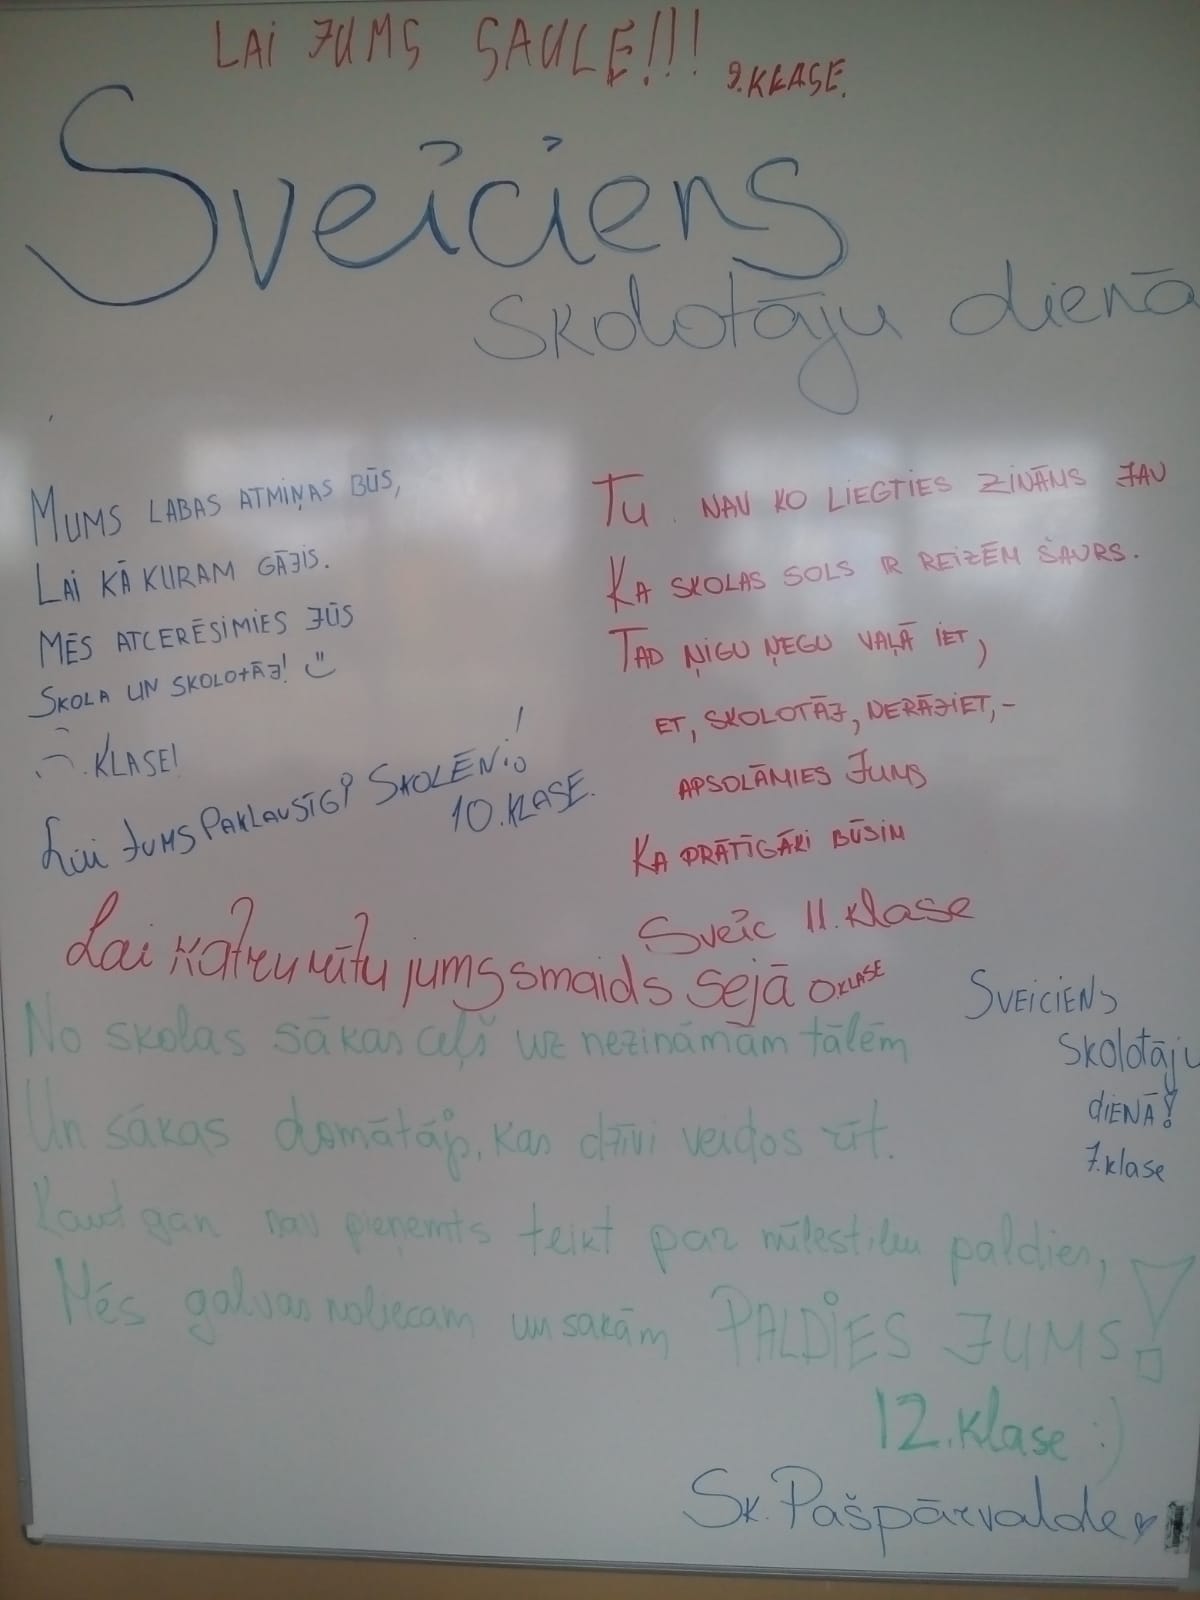 LAI JUMS SAULE!!!
9.KLASE.
Sveiciens
skolotāju dienā
MUMS LABAS ATMIŅAS BŪS,
LAI KĀ KURAM GĀJIS.
MĒS ATCERĒSIMIES JŪS
SKOLA UN SKOLOTĀJ!
.KLASE!
Lai JUMS PAKLAUSĪGI SKOLĒNI!
10.KLASE.
TU NAV KO LIEGTIES ZINĀMS JAU
KA SKOLAS SOLS IR REIZĒM ŠAURS.
TAD ŅIGU ŅEGU VAĻĀ IET,
ET, SKOLOTĀJ, NERĀJIET,-
APSOLĀMIES JUMS
KA PRĀTĪGĀKI BŪSIM
Sveic 11.klase
Lai katru rītu jums smaids sejā
KLASE
SVEICIENS
skolotāju
DIENĀ!
7.klase
No skolas sākas ceļš uz nezināmām tālēm
Un sākas domātājs, kas dzīvi veidos rīt.
Kaut gan nav pieņemts teikt par mīlestību paldies,
Mēs galvas noliecam un sakām PALDIES JUMS!
12.klase :)
Sk. Pašpārvalde